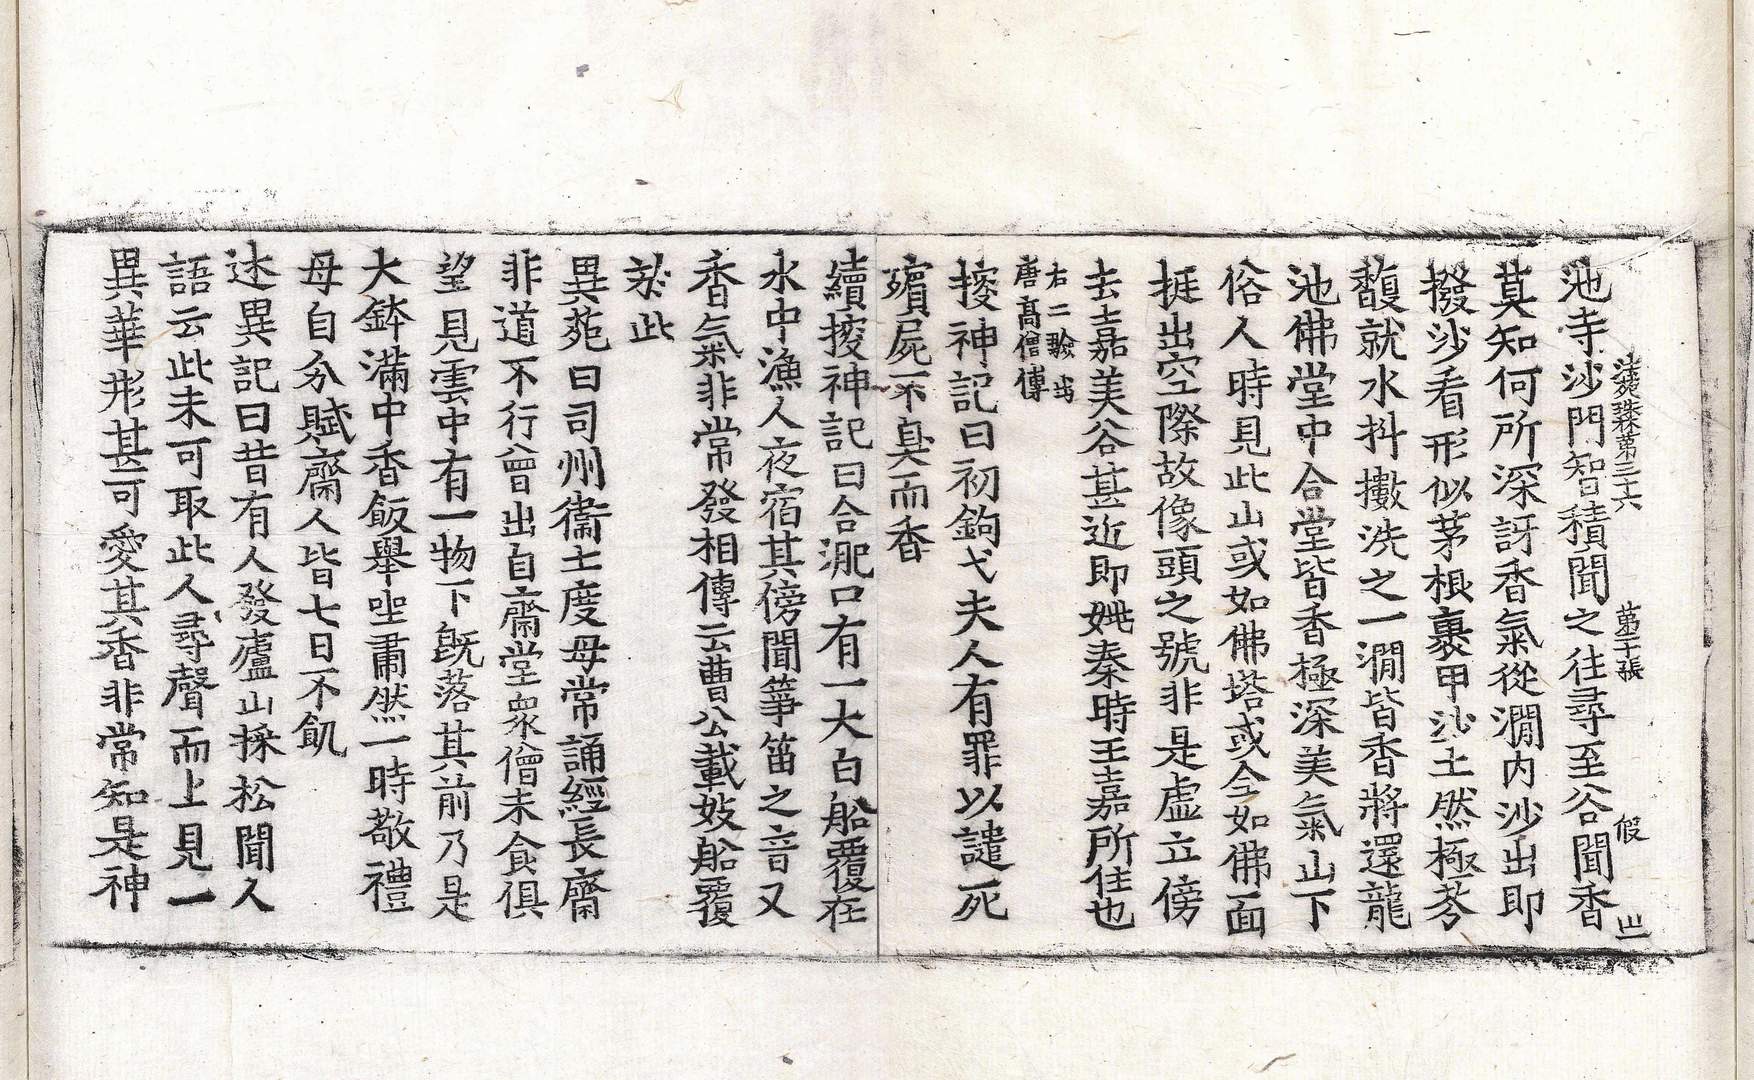 法苑珠林第三十六 第二十張 假
池寺沙門智積聞之往尋至谷聞香
莫知何所深訝香氣從澗內沙出即
撥沙看形似茅根裹甲沙土然極芬
馥就水抖擻洗之一澗皆香將還龍
池佛堂中合堂皆香極深美氣山下
俗人時見此山或如佛塔或全如佛面
挺出空際故像頭之號非是虛立傍
去嘉美谷甚近即姚秦時王嘉所住也
右二驗出
唐高僧傳
搜神記曰初鉤弋夫人有罪以譴死
殯屍不臭而香
續搜神記曰合淝口有一大白船覆在
水中漁人夜宿其傍聞箏笛之音又
香氣非常發相傳云曹公載妓船覆
於此
異苑曰司州衛士度母常誦經長齋
非道不行曾出自齋堂眾僧未食俱
望見雲中有一物下既落其前乃是
大鉢滿中香飯舉坐肅然一時敬禮
母自分賦齋人皆七日不飢
述異記曰昔有人發廬山採松聞人
語云此未可取此人尋聲而上見一
異華形甚可愛其香非常知是神